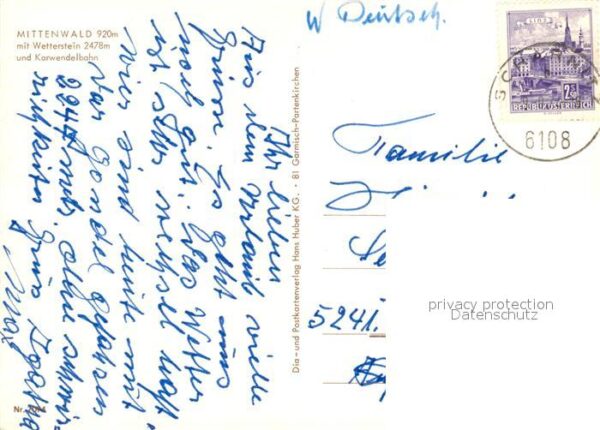 MITTENWALD 920m
mit Wetterstein 2478m
und Karwendelbahn
Ihr lieben
Aus dem Urlaub viele
Grüsse. Es geht uns
noch gut. Das Wetter
ist sehr wechselhaft.
wir sind heute mit
der Gondel gefahren
2244 mtr. ohne schwie-
rigkeiten Gruss Agatha
Max
Nr.
Dia- und Postkartenverlag Hans Huber KG. · 81 Garmisch-Partenkirchen
W Deutsch.
LINZ
REPUBLIK ÖSTERREICH
6108
Familie
5241.
privacy protection
Datenschutz